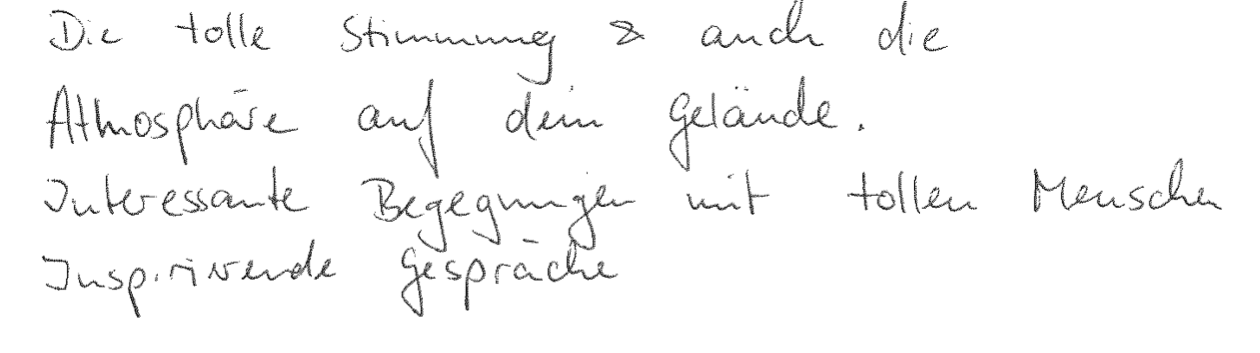 Die tolle Stimmung & auch die
Atmosphäre auf dem Gelände.
Interessante Begegnungen mit tollen Menschen
Inspirierende Gespräche